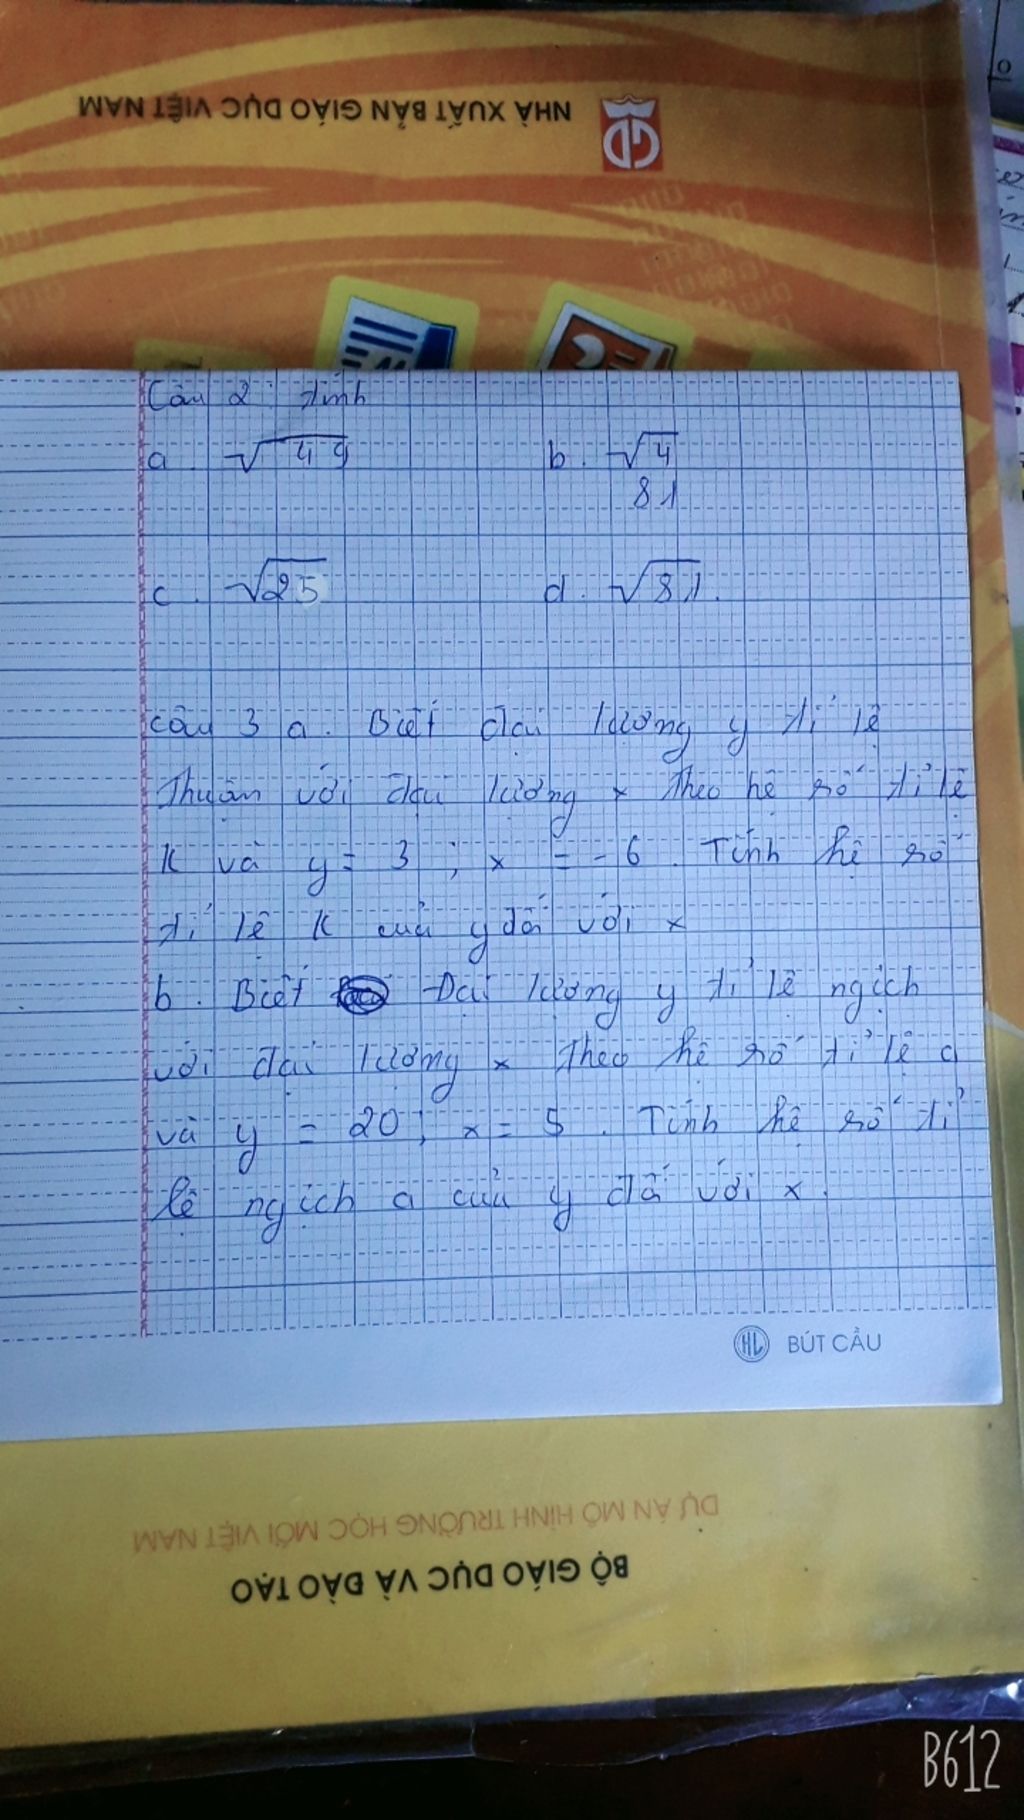 NHÀ XUẤT BẢN GIÁO DỤC VIỆT NAM
GD
Câu 2: tính
a. √49 b. √4
81
c. √25 d. √81.
câu 3 a. Biết đại lượng y tỉ lệ
Thuận với đại lượng x theo hệ số tỉ lệ
K và y = 3 ; x = -6. Tính hệ số
tỉ lệ K của y đối với x
b. Biết Đại lượng y tỉ lệ ngịch
với đại lượng x theo hệ số tỉ lệ a
và y = 20; x = 5. Tính hệ số tỉ
lệ ngịch a của y đối với x.
HL BÚT CẦU
DỰ ÁN MÔ HÌNH TRƯỜNG HỌC MỚI VIỆT NAM
BỘ GIÁO DỤC VÀ ĐÀO TẠO
B612